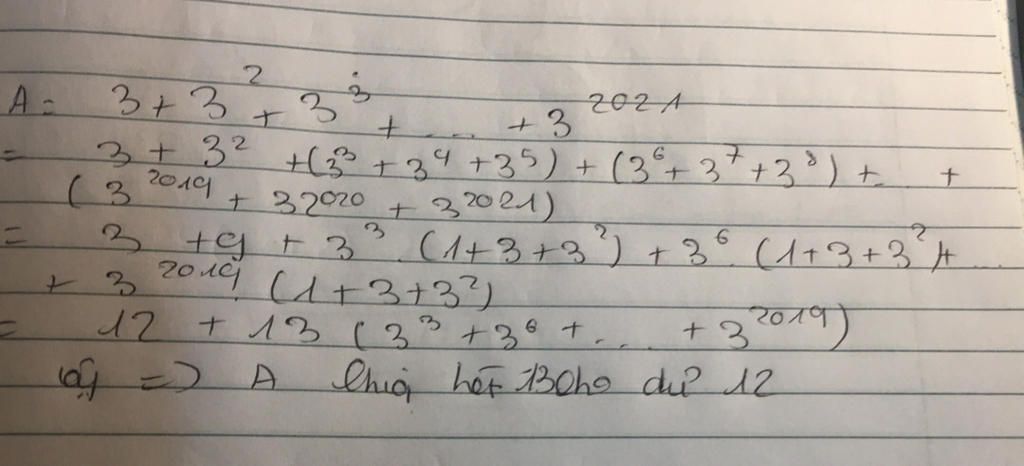 A = 3 + 3² + 3³ + ... + 3²⁰²¹
= 3 + 3² + (3³ + 3⁴ + 3⁵) + (3⁶ + 3⁷ + 3⁸) + .. +
(3²⁰¹⁹ + 3²⁰²⁰ + 3²⁰²¹)
= 3 + 9 + 3³ . (1 + 3 + 3²) + 3⁶ . (1 + 3 + 3²) + ...
+ 3²⁰¹⁹ . (1 + 3 + 3²)
= 12 + 13 (3³ + 3⁶ + ... + 3²⁰¹⁹)
=> A chia hết 13 cho dư 12